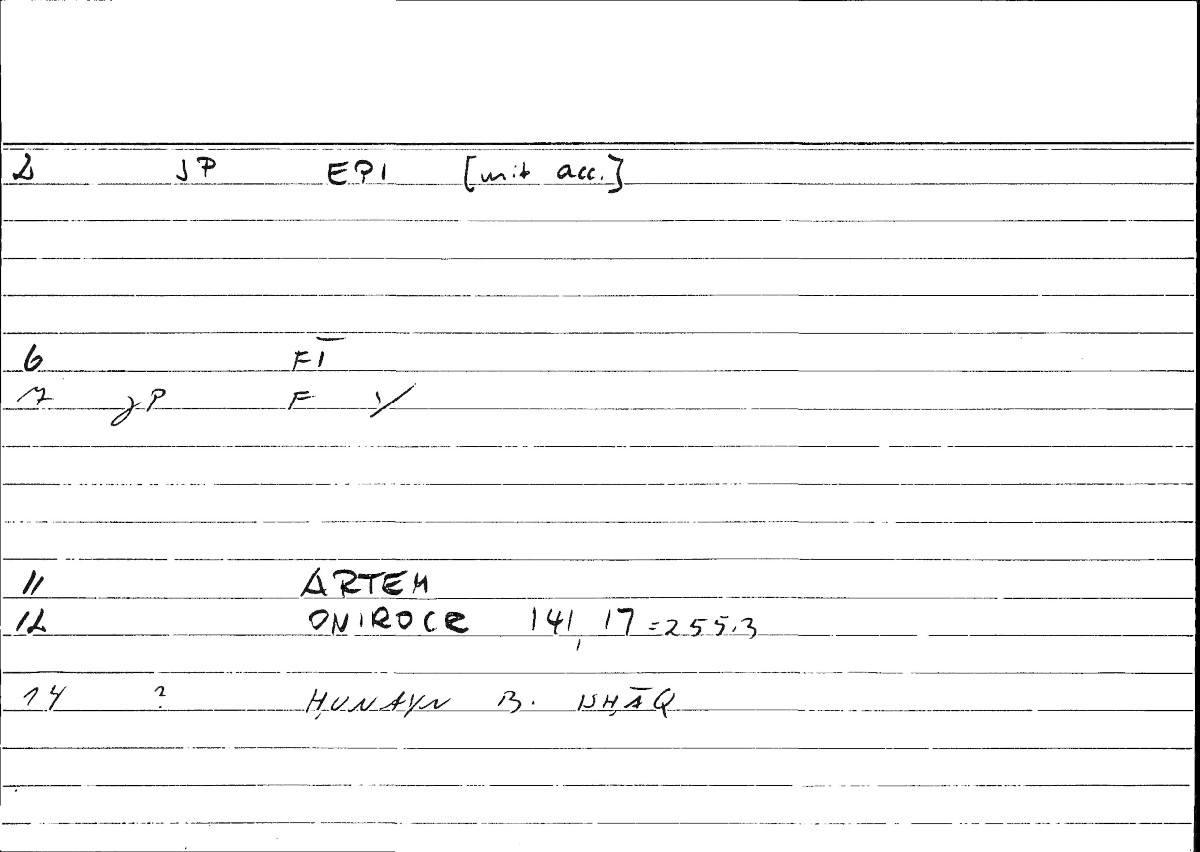 2 JP EPI [mit acc.]
6 FĪ
7 JP F
11 ARTEM
12 ONIROCR 141,17 = 255.3
14 ? ḤUNAYN B. ISḤĀQ